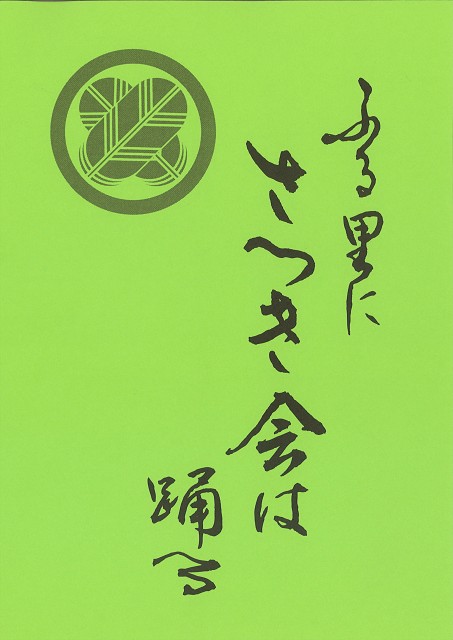 ふる里に
さつき会は
踊る